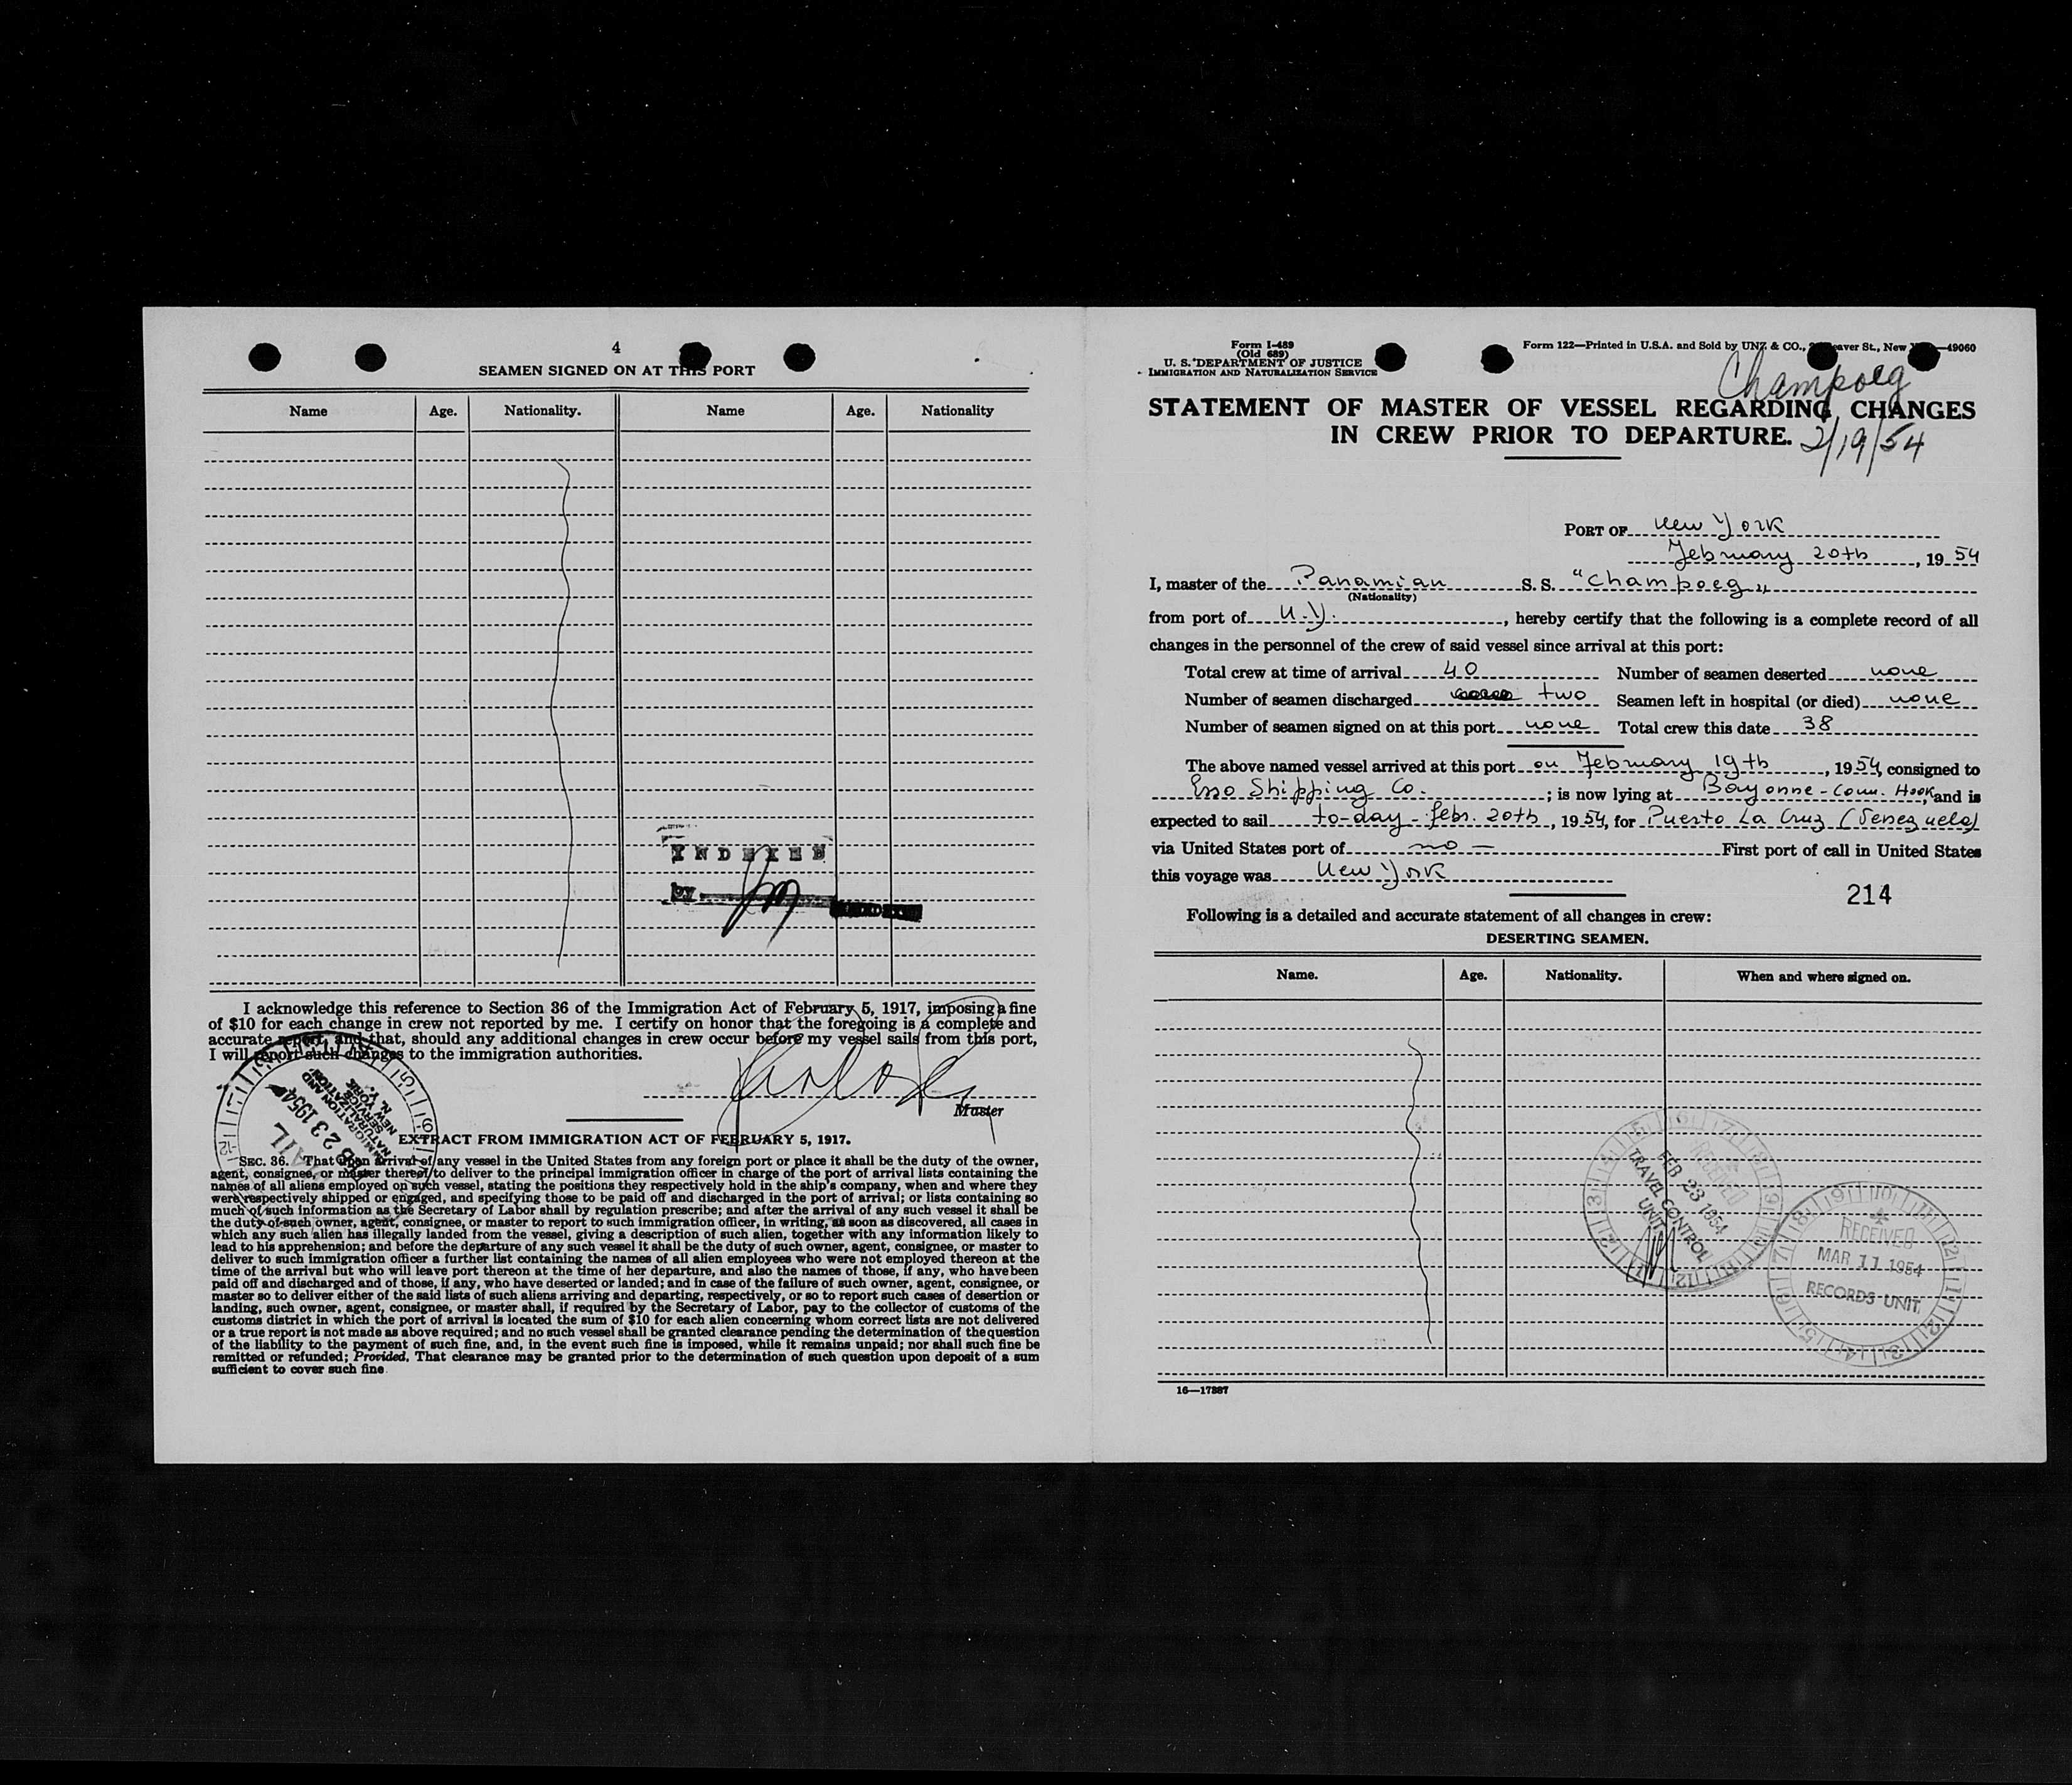 4
SEAMEN SIGNED ON AT THIS PORT
Name Age. Nationality. Name Age. Nationality
INDEXED
by
I acknowledge this reference to Section 36 of the Immigration Act of February 5, 1917, imposing a fine
of $10 for each change in crew not reported by me. I certify on honor that the foregoing is a complete and
accurate report, and that, should any additional changes in crew occur before my vessel sails from this port,
I will report such changes to the immigration authorities.
Master
IMMIGRATION AND
NATURALIZATION
SERVICE
NEW YORK, N. Y.
23 1954
MAIL
EXTRACT FROM IMMIGRATION ACT OF FEBRUARY 5, 1917.
SEC. 36. That upon arrival of any vessel in the United States from any foreign port or place it shall be the duty of the owner,
agent, consignee, or master thereof to deliver to the principal immigration officer in charge of the port of arrival lists containing the
names of all aliens employed on such vessel, stating the positions they respectively hold in the ship's company, when and where they
were respectively shipped or engaged, and specifying those to be paid off and discharged in the port of arrival; or lists containing so
much of such information as the Secretary of Labor shall by regulation prescribe; and after the arrival of any such vessel it shall be
the duty of such owner, agent, consignee, or master to report to such immigration officer, in writing, as soon as discovered, all cases in
which any such alien has illegally landed from the vessel, giving a description of such alien, together with any information likely to
lead to his apprehension; and before the departure of any such vessel it shall be the duty of such owner, agent, consignee, or master to
deliver to such immigration officer a further list containing the names of all alien employees who were not employed thereon at the
time of the arrival but who will leave port thereon at the time of her departure, and also the names of those, if any, who have been
paid off and discharged and of those, if any, who have deserted or landed; and in case of the failure of such owner, agent, consignee, or
master so to deliver either of the said lists of such aliens arriving and departing, respectively, or so to report such cases of desertion or
landing, such owner, agent, consignee, or master shall, if required by the Secretary of Labor, pay to the collector of customs of the
customs district in which the port of arrival is located the sum of $10 for each alien concerning whom correct lists are not delivered
or a true report is not made as above required; and no such vessel shall be granted clearance pending the determination of the question
of the liability to the payment of such fine, and, in the event such fine is imposed, while it remains unpaid; nor shall such fine be
remitted or refunded; Provided, That clearance may be granted prior to the determination of such question upon deposit of a sum
sufficient to cover such fine.
Form I-489
(Old 689)
U. S. DEPARTMENT OF JUSTICE
IMMIGRATION AND NATURALIZATION SERVICE
Form 122—Printed in U.S.A. and Sold by UNZ & CO., eaver St., New —49060
Champoeg
STATEMENT OF MASTER OF VESSEL REGARDING CHANGES
IN CREW PRIOR TO DEPARTURE.
2/19/54
PORT OF New York
February 20th, 1954
I, master of the Panamian S. S. "Champoeg"
(Nationality)
from port of N.Y., hereby certify that the following is a complete record of all
changes in the personnel of the crew of said vessel since arrival at this port:
Total crew at time of arrival 40 Number of seamen deserted none
Number of seamen discharged two Seamen left in hospital (or died) none
Number of seamen signed on at this port none Total crew this date 38
The above named vessel arrived at this port on February 19th, 1954, consigned to
Esso Shipping Co.; is now lying at Bayonne - Conn. Hook, and is
expected to sail to-day - febr. 20th, 1954, for Puerto La Cruz (Venezuela)
via United States port of no — First port of call in United States
this voyage was New York
214
Following is a detailed and accurate statement of all changes in crew:
DESERTING SEAMEN.
Name. Age. Nationality. When and where signed on.
RECEIVED
FEB 23 1954
TRAVEL CONTROL
UNIT
RECEIVED
MAR 11 1954
RECORDS UNIT.
16—17887